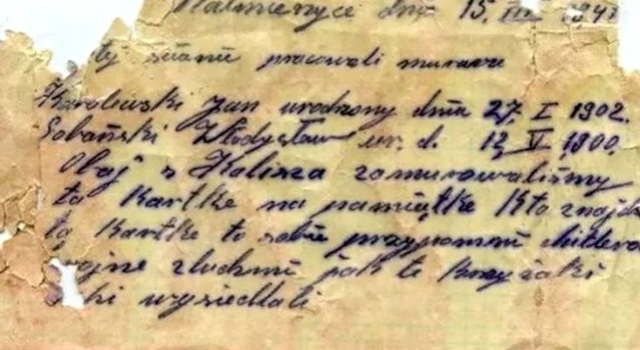 dnia 15. III 1941
tej ścianie pracowali murarze
Karolewski Jan urodzony dnia 27. I 1902.
Sobański Władysław ur. d. 12 V 1900.
Obaj z Kalisza zamurowaliśmy
tą kartkę na pamiątkę Kto znajdzie
tą kartkę to sobie przypomni
wojne z ludźmi jak te krzyżaki
wysiedlali